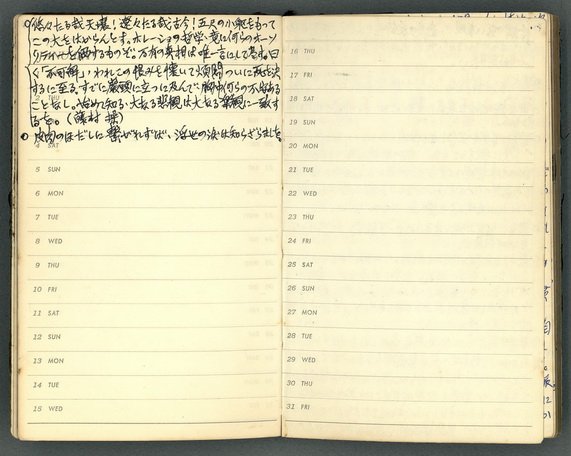 悠々たる哉天壤!遼々たる哉古今!五尺の小軀をもって
この大をはからんとす。ホレーショの哲学竟に何らのオーソ
リティーを価するものぞ。万有の真相は唯一言にして悉す。曰
く「不可解」われこの恨みを懐いて煩悶ついに死を決
するに至る。すでに巌頭に立つに及んで、胸中何らの不安ある
ことなし。始めて知る、大なる悲観は大なる楽観に一致す
るを。(藤村 操)
肉のほだしに繋がれずば、浮世の波は知らざらましを
4 SAT
5 SUN
6 MON
7 TUE
8 WED
9 THU
10 FRI
11 SAT
12 SUN
13 MON
14 TUE
15 WED
16 THU
17 FRI
18 SAT
19 SUN
20 MON
21 TUE
22 WED
23 THU
24 FRI
25 SAT
26 SUN
27 MON
28 TUE
29 WED
30 THU
31 FRI